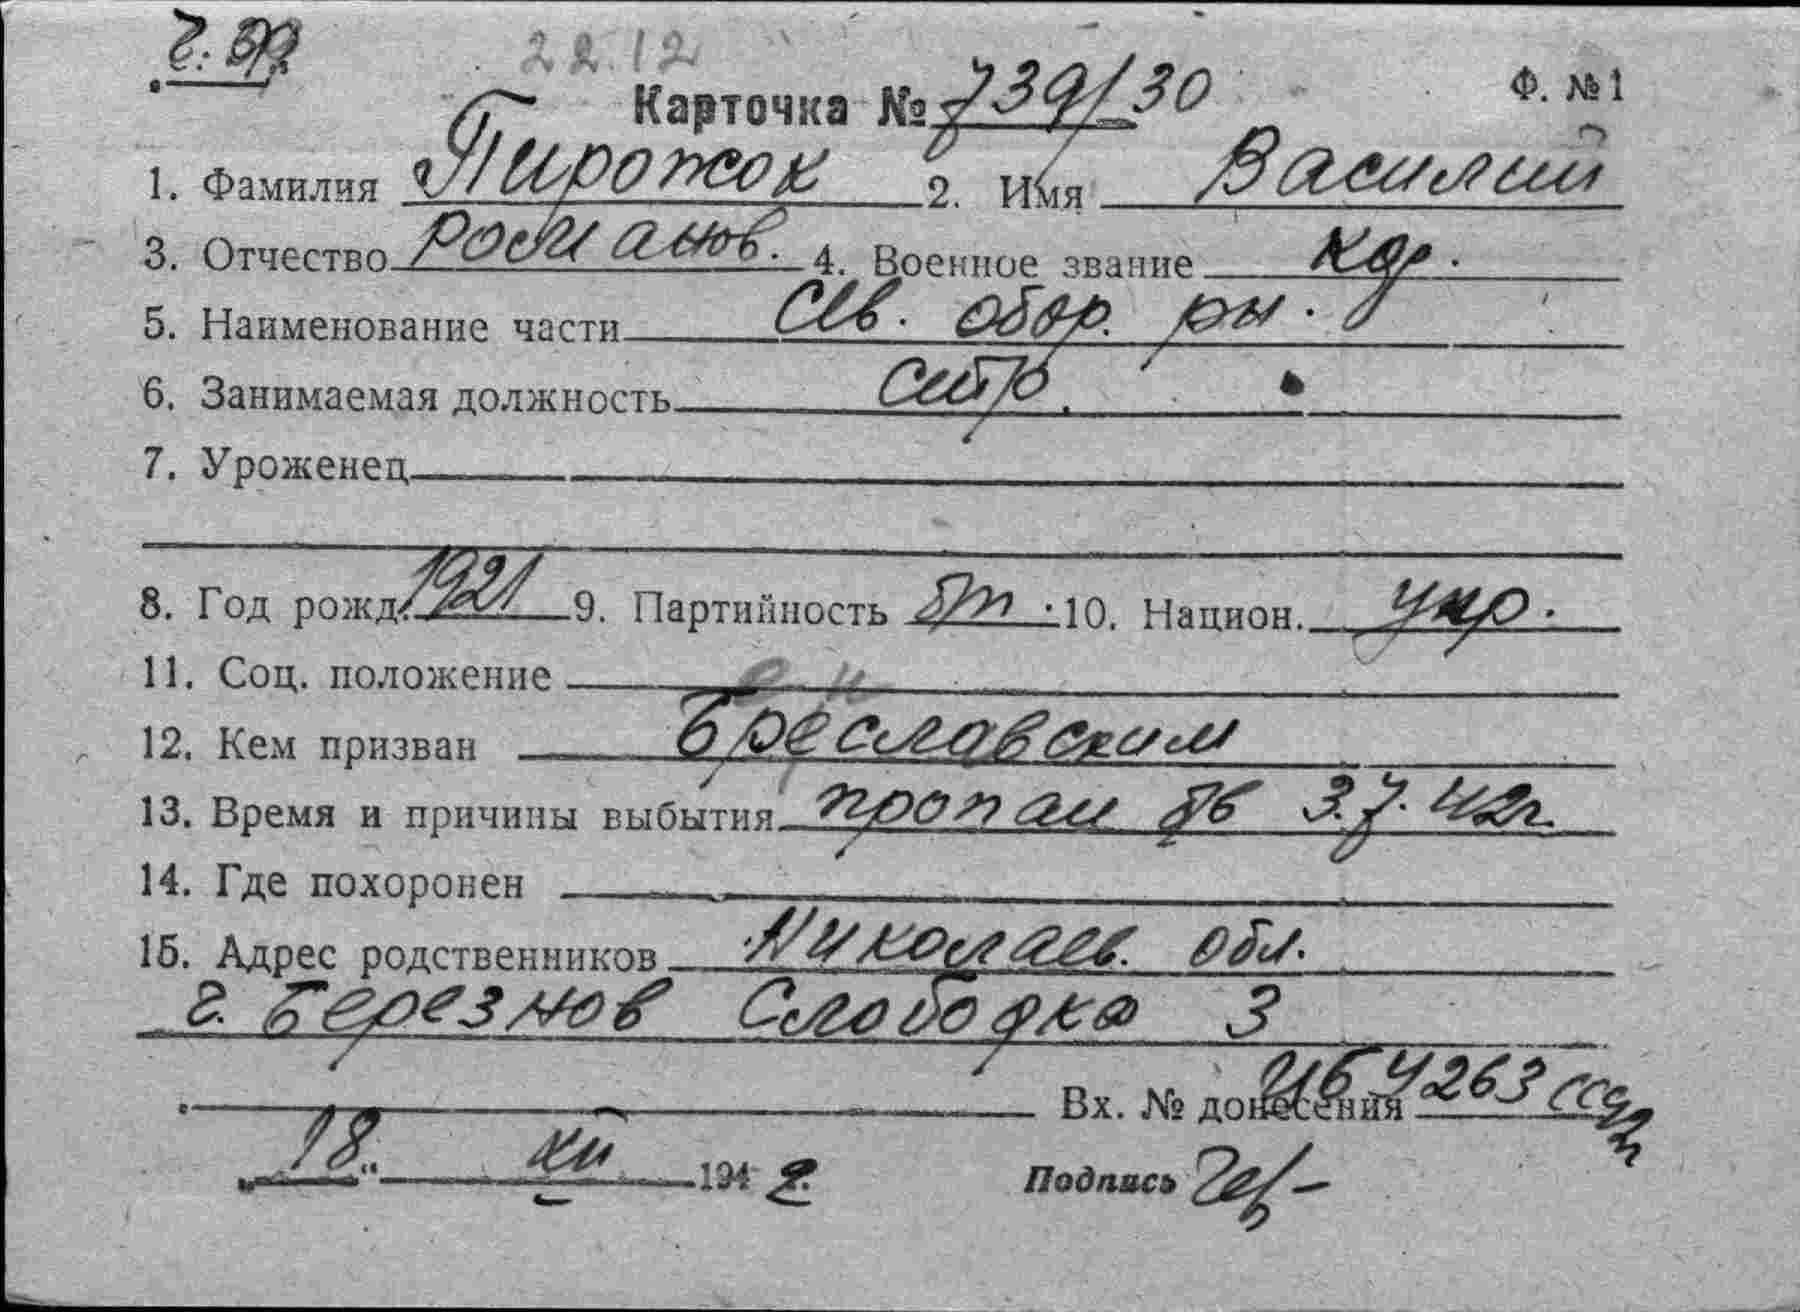 22.12
Карточка № 739/30 Ф. №1
1. Фамилия Пирожок 2. Имя Василий
3. Отчество Романов. 4. Военное звание кдр.
5. Наименование части Сев. обор. рн.
6. Занимаемая должность
7. Уроженец
8. Год рожд. 1921 9. Партийность б/п 10. Национ. укр.
11. Соц. положение
12. Кем призван Бреславским
13. Время и причины выбытия пропал бв 3.7.42г.
14. Где похоронен
15. Адрес родственников Николаев. обл.
г. Березнов Слободка 3
Вх. № донесения 4263
„18“ XII 1942.
Подпись